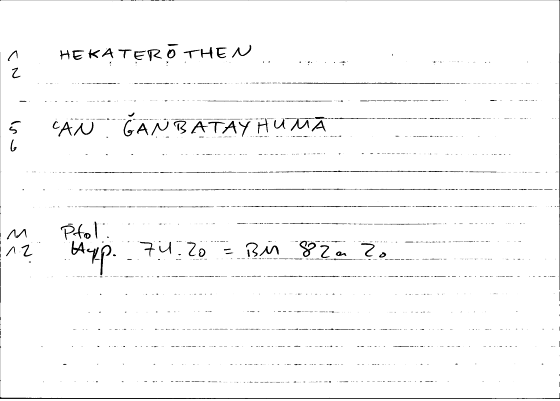 1 HEKATERŌTHEN
2
5 ʿAN ǦANBATAYHUMĀ
6
11 Ptol.
12 Hyp. 74.20 = BM 82a 20